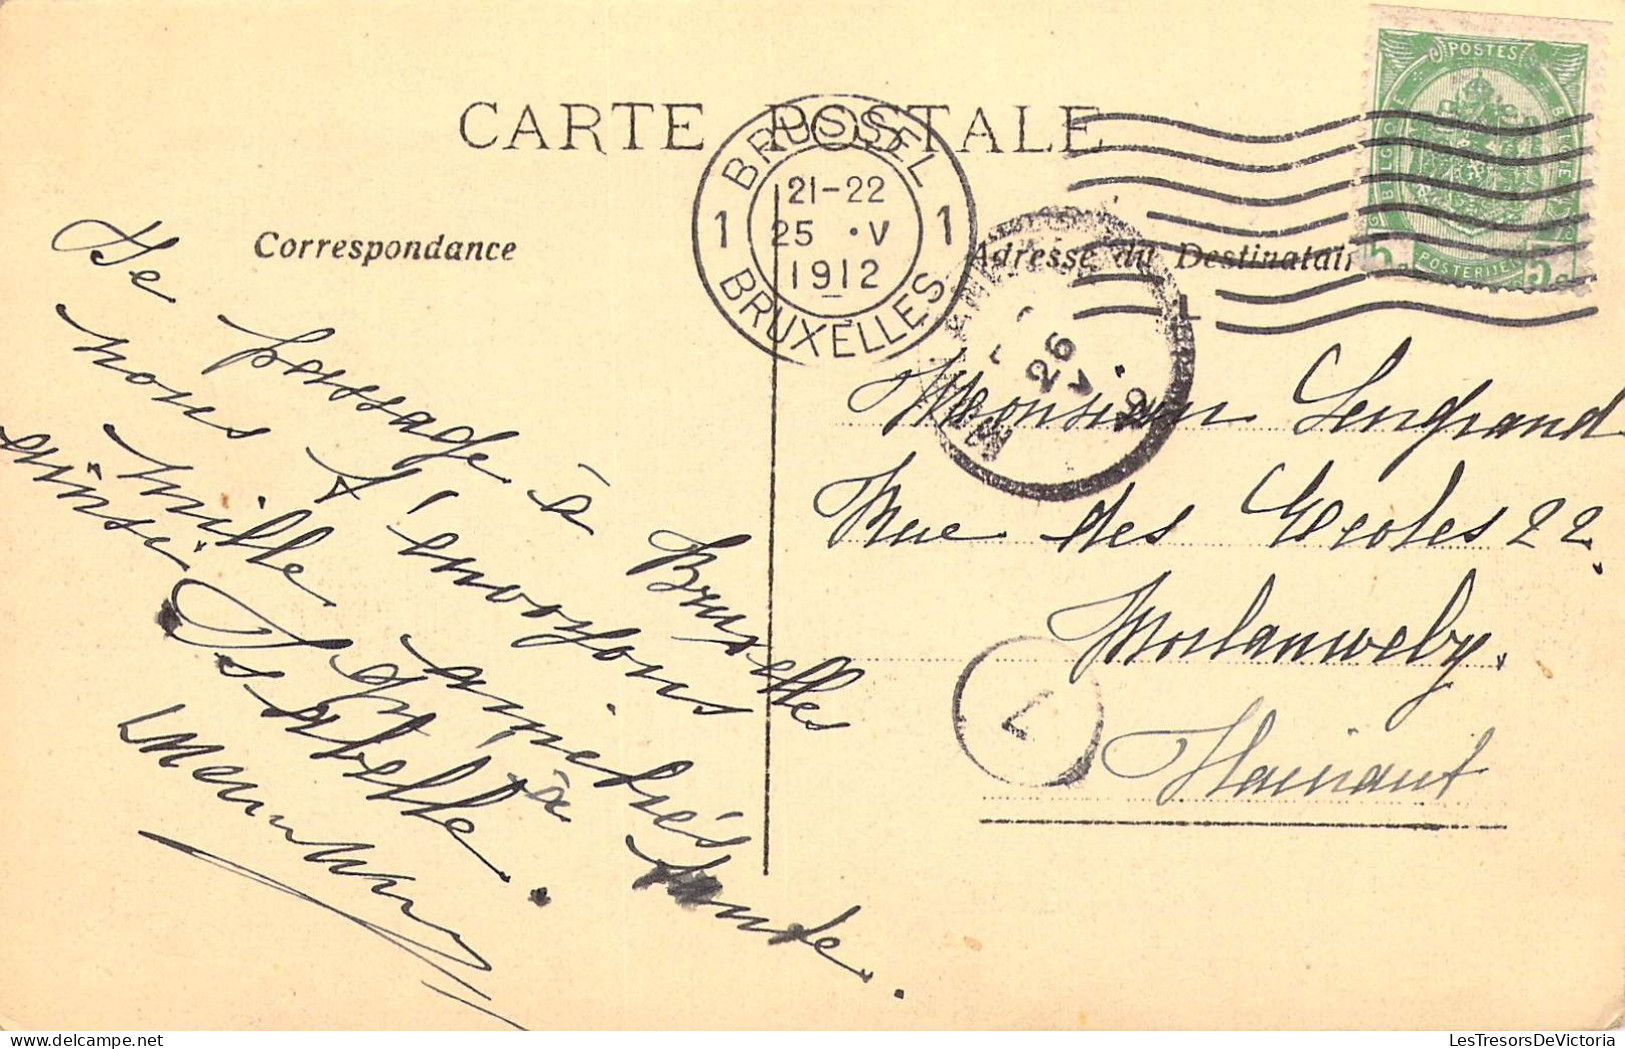 CARTE POSTALE
Correspondance
Adresse du Destinatai
BRUSSEL
21-22
1 25 ·V 1
1912
BRUXELLES
POSTES
BELGIQUE
BELGIE
POSTERIJEN
5 5
26
V
7
De passage à Bruxelles
nous t'envoyons
mille amitiés
ainsi qu'à tante
Isabelle.
Monsieur Lengrand
Rue des Ecoles 22.
Morlanwelz.
Hainaut
LesTresorsDeVictoria